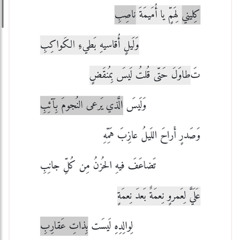 كِلِيني لِهَمٍّ يا أُمَيمَةَ ناصِبِ
وَلَيلٍ أُقاسيهِ بَطيءِ الكَواكِبِ
تَطاوَلَ حَتّى قُلتُ لَيسَ بِمُنقَضٍ
وَلَيسَ الَّذي يَرعى النُجومَ بِآئِبِ
وَصَدرٍ أَراحَ اللَيلُ عازِبَ هَمِّهِ
تَضاعَفَ فيهِ الحُزنُ مِن كُلِّ جانِبِ
عَلَيَّ لِعَمروٍ نِعمَةٌ بَعدَ نِعمَةٍ
لِوالِدِهِ لَيسَت بِذاتِ عَقارِبِ